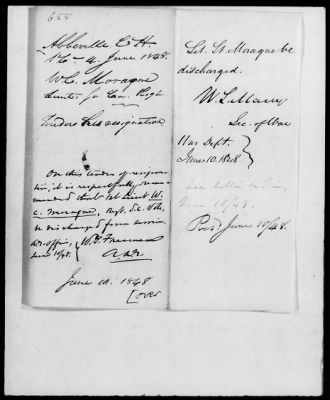 655
Abbeville C.H.
So. Ca. 4 June 1848.
W. C. Moragne
Lieut. So. Car. Regt.
Tenders his resignation
On this tender of resigna-
tion, it is respectfully recom-
mended that 1st Lieut W.
C. Moragne, Regt. S.C. Vols,
be discharged from service.
Adt. Office,
June 10/48.
June 10. 1848
[over
Let Lt. Moragne be
discharged.
W. L. Marcy
Sec. of War
War Dept.
June 10. 1848
June 10/48.
Recd. June 10/48.